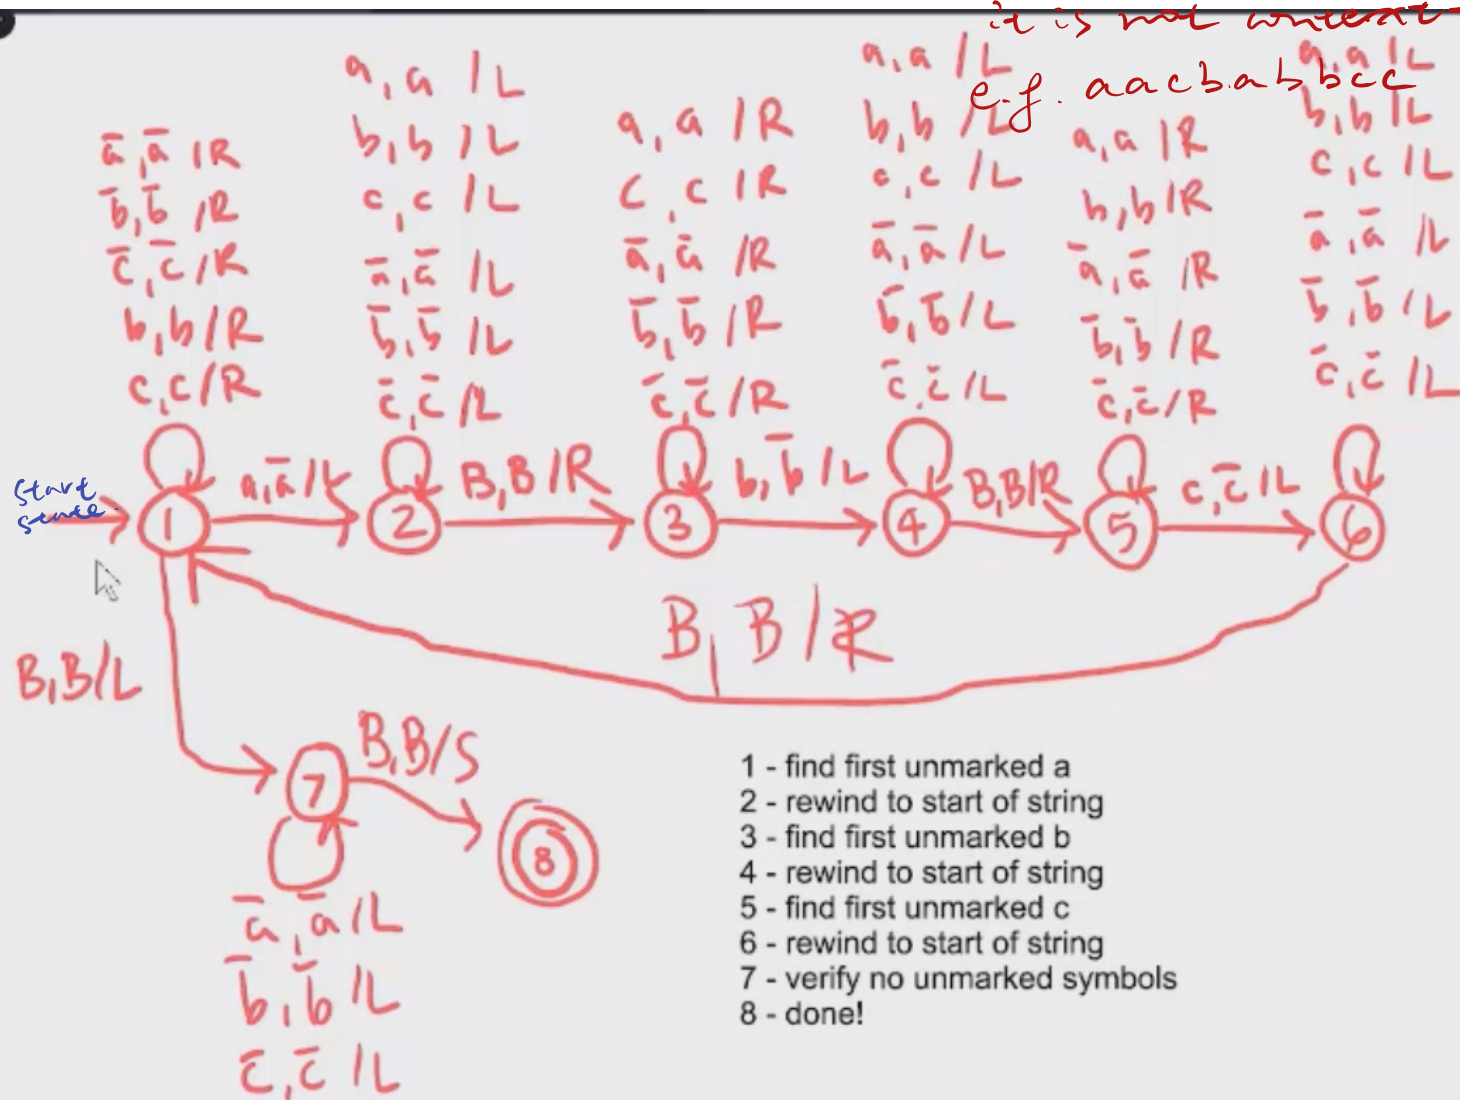 it is not context-
e.g. aacbabbcc
ā,ā /R
b̄,b̄ /R
c̄,c̄ /R
b,b /R
c,c /R
a,a /L
b,b /L
c,c /L
ā,ā /L
b̄,b̄ /L
c̄,c̄ /L
a,a /R
c,c /R
ā,ā /R
b̄,b̄ /R
c̄,c̄ /R
a,a /L
b,b /L
c,c /L
ā,ā /L
b̄,b̄ /L
c̄,c̄ /L
a,a /R
b,b /R
ā,ā /R
b̄,b̄ /R
c̄,c̄ /R
a,a /L
b,b /L
c,c /L
ā,ā /L
b̄,b̄ /L
c̄,c̄ /L
start
1
a,ā /L
2
B,B /R
3
b,b̄ /L
4
B,B/R
5
c,c̄ /L
6
B,B /R
B,B/L
7
B,B/S
8
ā,ā /L
b̄,b̄ /L
c̄,c̄ /L
1 - find first unmarked a
2 - rewind to start of string
3 - find first unmarked b
4 - rewind to start of string
5 - find first unmarked c
6 - rewind to start of string
7 - verify no unmarked symbols
8 - done!